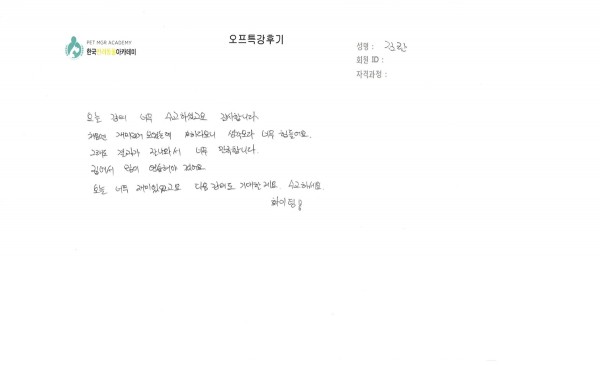 PET MGR ACADEMY
한국반려동물아카데미
오프특강후기
성명 : 김란
회원 ID :
자격과정 :
오늘 강의 너무 수고하셨고요 감사합니다.
처음엔 재미있어 보였는데 하다보니 생각보다 너무 힘들어요.
그래도 결과가 잘나와서 너무 만족합니다.
집에서 많이 연습해야 겠어요.
오늘 너무 재미있었고요 다음 강의도 기대할게요. 수고하세요.
화이팅